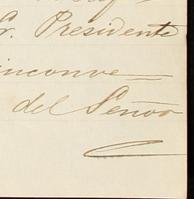 Sr. Presidente
inconve
del Señor